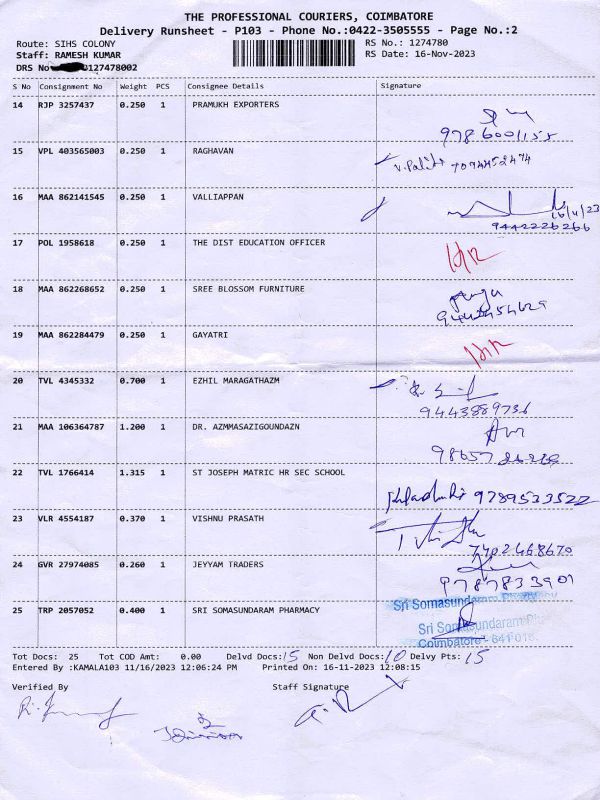 THE PROFESSIONAL COURIERS, COIMBATORE
Delivery Runsheet - P103 - Phone No.:0422-3505555 - Page No.:2
Route: SIHS COLONY
RS No.: 1274780
Staff: RAMESH KUMAR
RS Date: 16-Nov-2023
DRS No 127478002
S No Consignment No Weight PCS Consignee Details Signature
14 RJP 3257437 0.250 1 PRAMUKH EXPORTERS
9786001155
15 VPL 403565003 0.250 1 RAGHAVAN
16 MAA 862141545 0.250 1 VALLIAPPAN
16/11/23
9442226266
17 POL 1958618 0.250 1 THE DIST EDUCATION OFFICER
18 MAA 862268652 0.250 1 SREE BLOSSOM FURNITURE
19 MAA 862284479 0.250 1 GAYATRI
20 TVL 4345332 0.700 1 EZHIL MARAGATHAZM
9443889736
21 MAA 106364787 1.200 1 DR. AZMMASAZIGOUNDAZN
22 TVL 1766414 1.315 1 ST JOSEPH MATRIC HR SEC SCHOOL
9789533522
23 VLR 4554187 0.370 1 VISHNU PRASATH
7402468670
24 GVR 27974085 0.260 1 JEYYAM TRADERS
9787833901
Sri Somasundaram Pharmacy
25 TRP 2057052 0.400 1 SRI SOMASUNDARAM PHARMACY
Sri Somasundaram
Coimbatore - 641 018.
Tot Docs: 25 Tot COD Amt: 0.00 Delvd Docs: 15 Non Delvd Docs: 10 Delvy Pts: 15
Entered By :KAMALA103 11/16/2023 12:06:24 PM Printed On: 16-11-2023 12:08:15
Verified By Staff Signature